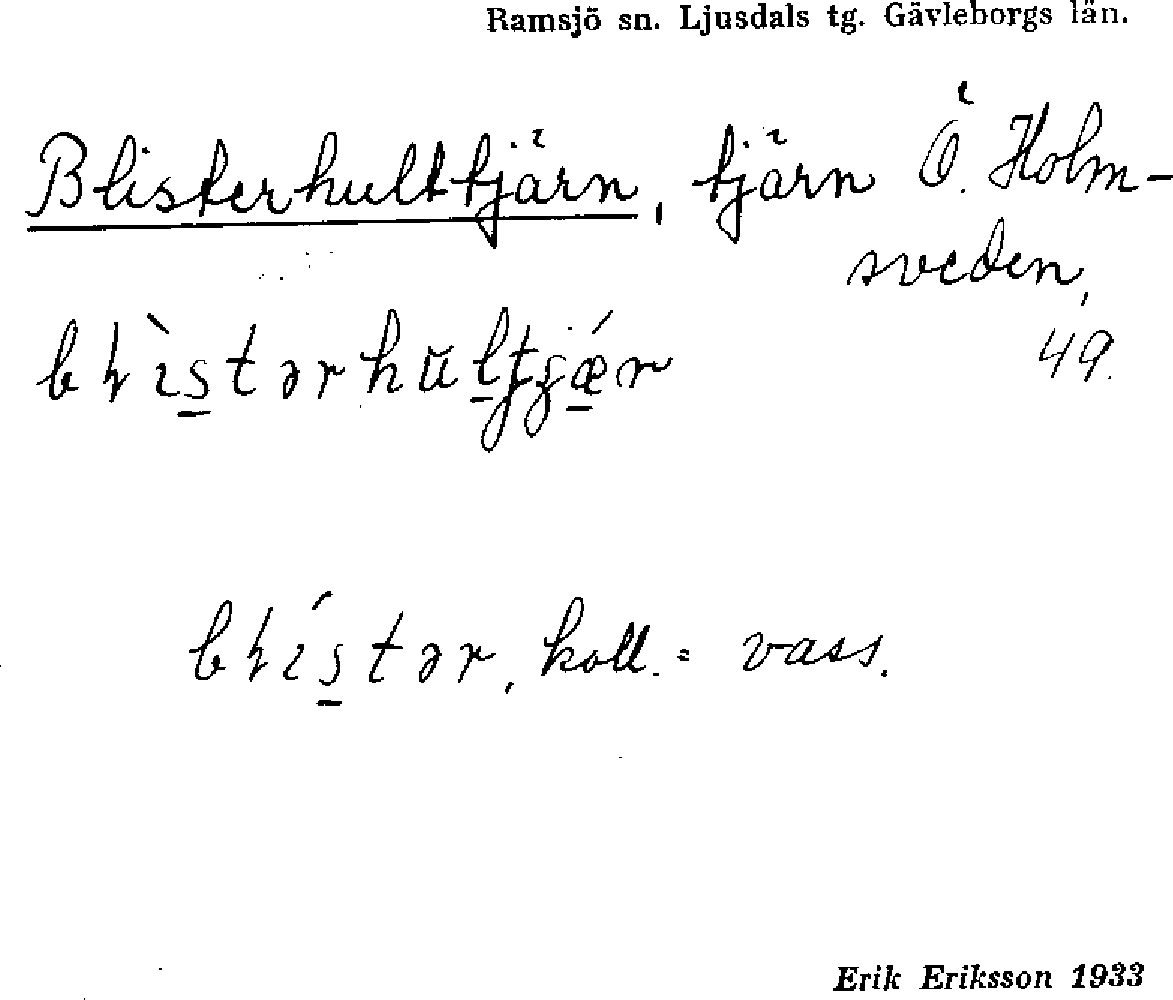 Ramsjö sn. Ljusdals tg. Gävleborgs län.
Blisterhulttjärn, tjärn Ö. Holm-
sveden,
49.
błìstərhŭltjǽr
błístər, koll. = vass.
Erik Eriksson 1933